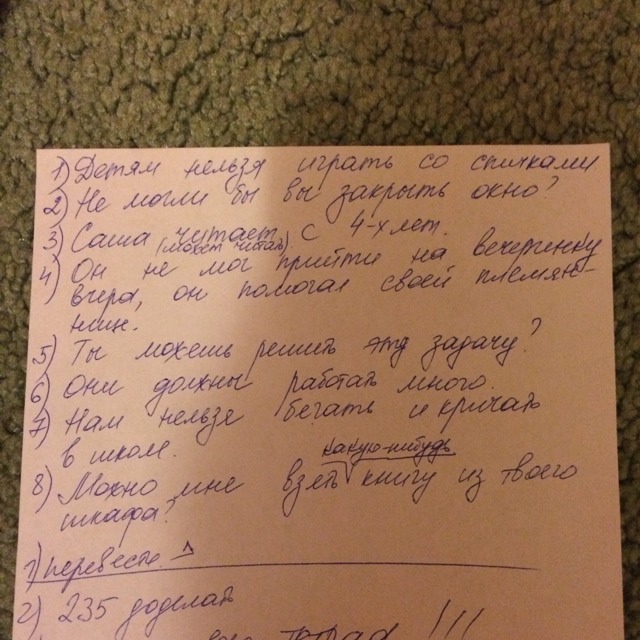 1) Детям нельзя играть со спичками
2) Не могли бы вы закрыть окно?
3) Саша читает с 4-х лет.
(может читать)
4) Он не мог прийти на вечеринку
вчера, он помогал своей племян-
ниц.
5) Ты можешь решить эту задачу?
6) Они должны работать много.
7) Нам нельзя бегать и кричать
в школе.
какую-нибудь
8) Можно мне взять книгу из твоего
шкафа?
1) перевести
2) 235 доделать
!!!